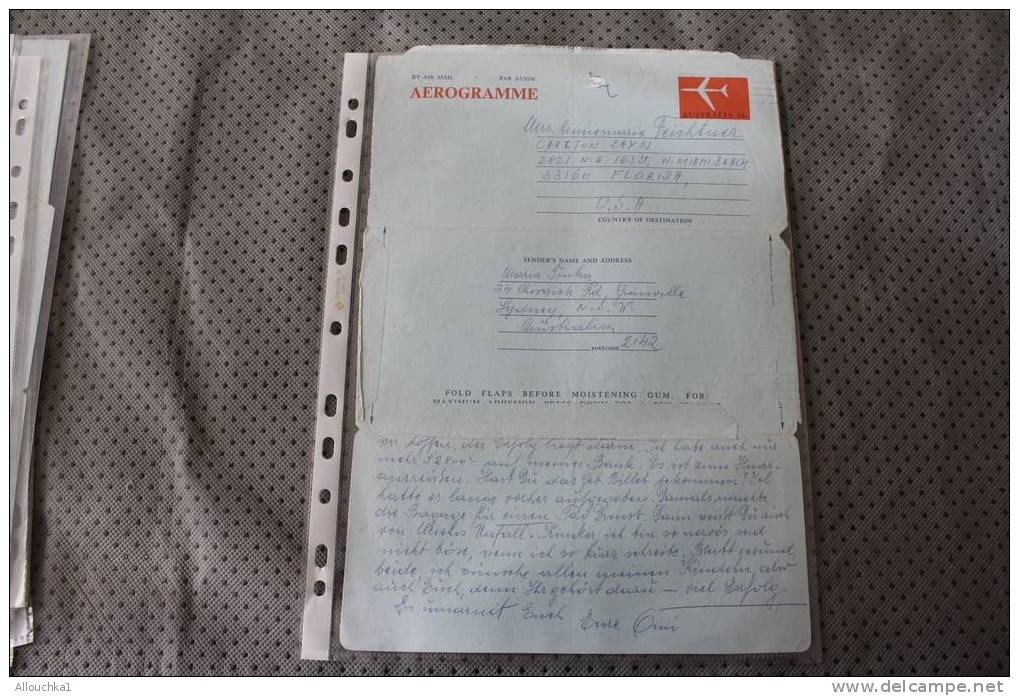 BY AIR MAIL PAR AVION
AEROGRAMME
AUSTRALIA
Mrs. Annemarie Feichtner
CARLTON
2821 N.E. 163 St, N. MIAMI BEACH
33160 FLORIDA,
U.S.A
COUNTRY OF DESTINATION
SENDER'S NAME AND ADDRESS
Maria
Rd, Granville
Sydney, N.S.W.
Australia
POSTCODE 2142
FOLD FLAPS BEFORE MOISTENING GUM. FOR
wir hoffen, der Erfolg liegt darin, ich habe auch nur
mehr auf meiner Bank. Es ist zum Haar-
ausreissen. Hast Du das Geb. Billet bekommen?
hatte es lange vorher aufgegeben. Damals
die für einen Dann weißt Du auch
von Unfall. Kinder, ich bin so nervös seid
nicht böse, wenn ich so kurz schreibe. Bleibt gesund,
beide, ich wünsche allen meinen Kindern, also
auch Euch, denn Ihr gehört dazu — viel Erfolg.
Es umarmt Euch Eure Omi
Allouchka1
delcampe.net